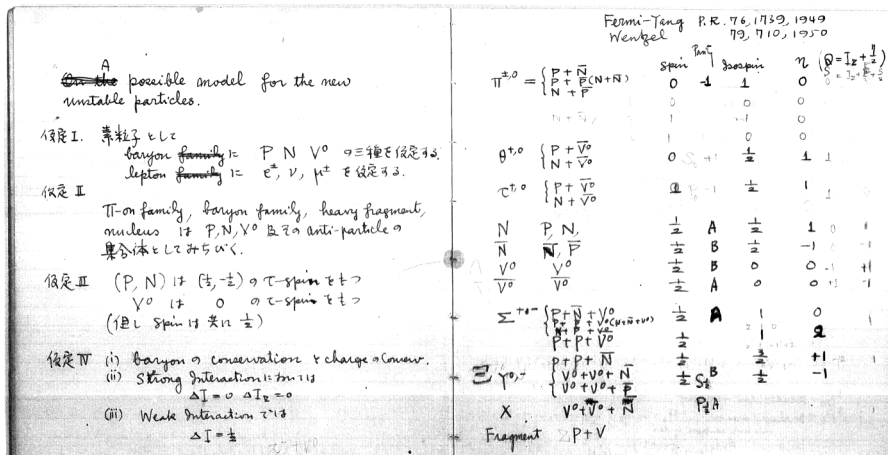 A
possible model for the new
unstable particles.
仮定 I. 素粒子として
baryon family に P N V⁰ の三種を仮定する.
lepton family に e±, ν, μ± を仮定する.
仮定 II
Π-on family, baryon family, heavy fragment,
nucleus は P, N, V⁰ 及その anti-particle の
集合体としてみちびく.
仮定 III (P, N) は (½, -½) の τ-spin をもつ
V⁰ は 0 の τ-spin をもつ
(但し spin は共に ½)
仮定 IV (i) baryon の conservation と charge の Conserv.
(ii) Strong Interaction に於ては
ΔI = 0 ΔIz = 0
(iii) Weak Interaction では
ΔI = ½
Fermi-Yang P.R. 76, 1739, 1949
Wentzel 79, 710, 1950
Spin Parity Isospin η (Q = Iz + η/2)
Π±,0 = { P + N̅
P + P̅ (N + N̅)
N + P̅ 0 -1 1 0
0 0 0 0
1 0
1 0 0 0
θ+,0 { P + V̅⁰
N + V̅⁰ 0 ½ 1 1
τ+,0 { P + V̅⁰
N + V̅⁰ ½ 1 1
N P, N, ½ A ½ 1
N̅ N̅, P̅ ½ B ½ -1
V⁰ V⁰ ½ B 0 0 -1 +1
V̅⁰ V̅⁰ ½ A 0 0 -1
Σ+0- { P + N̅ + V⁰
P + P̅ + V⁰ (N + N̅ + V⁰)
N + P̅ + V⁰ ½ A 1 0
P + P + V̅⁰ ½ 1 2
P + P + N̅ ½ 3/2 +1
Ξ Y⁰,⁻ { V⁰ + V⁰ + N̅
V⁰ + V⁰ + P̅ ½ S½ B ½ -1
X V⁰ + V̅⁰ + N̅ P½ A
Fragment ΣP + V